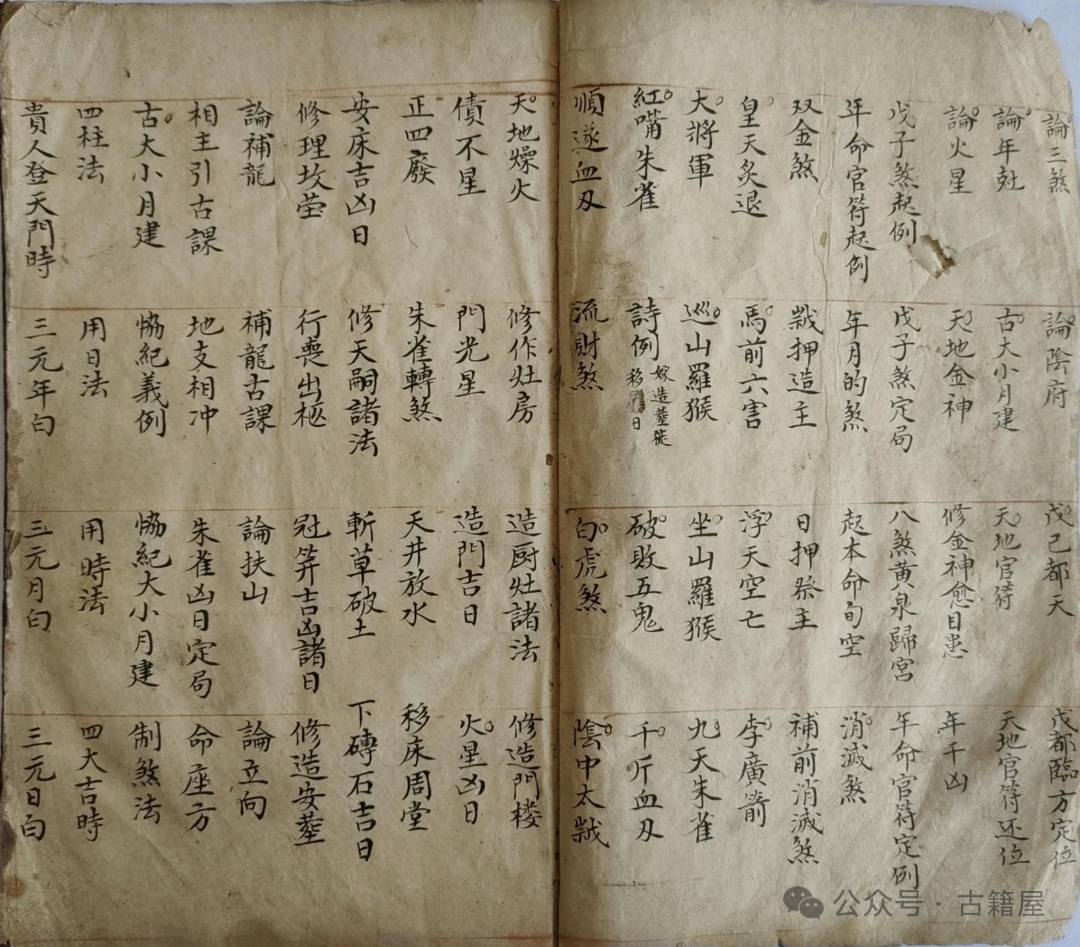 論三煞 論陰府 戊己都天 戊都臨方定位
論年尅 古大小月建 天地官符 天地官符还位
論火星 天地金神 修金神愈目患 年干凶
戊子煞起例 戊子煞定局 八煞黃泉歸宮 年命官符定例
年命官符起例 年月的煞 起本命旬空 消滅煞
双金煞 歲押造主 日押祭主 補前消滅煞
皇天炙退 馬前六害 浮天空亡 李廣箭
大將軍 巡山羅猴 坐山羅猴 九天朱雀
紅嘴朱雀 詩例 嫁造葬徙移日 破敗五鬼 千斤血刃
順逐血刃 流財煞 白虎煞 陰中太歲
天地燥火 修作灶房 造厨灶諸法 修造門楼
債不星 門光星 造門吉日 火星凶日
正四廢 朱雀轉煞 天井放水 移床周堂
安床吉凶日 修天嗣諸法 斬草破土 下磚石吉日
修理坟茔 行喪出柩 冠笄吉凶諸日 修造安葬
論補龍 補龍古課 論扶山 論立向
相主引古課 地支相冲 朱雀凶日定局 命座方
古大小月建 恊紀義例 恊紀大小月建 制煞法
四柱法 用日法 用時法 四大吉時
貴人登天門時 三元年白 三元月白 三元日白
公众号 · 古籍屋